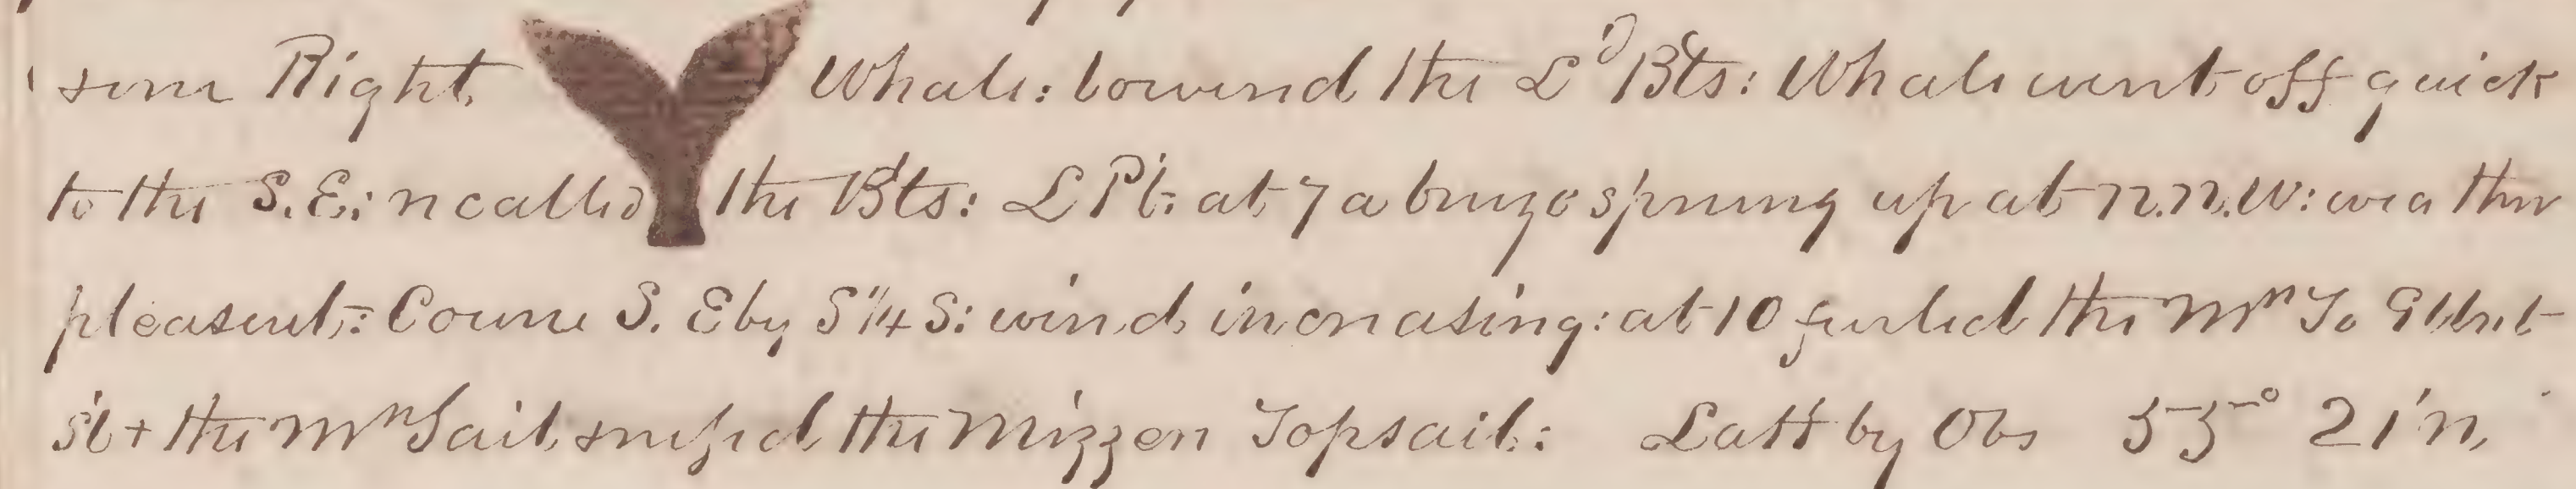 some Right Whale: lowered the L^d Bts: Whale went off quick
to the S.E: recalled the Bts: L Pt: at 7 a breeze sprung up at N.N.W: weather
pleasent: Course S. E by S 1/4 S: wind increasing: at 10 furled the M^n To Gllnt
Sl + the M^n Sail reefed the Mizzen Topsail: Latt by Obs 55° 21' N,